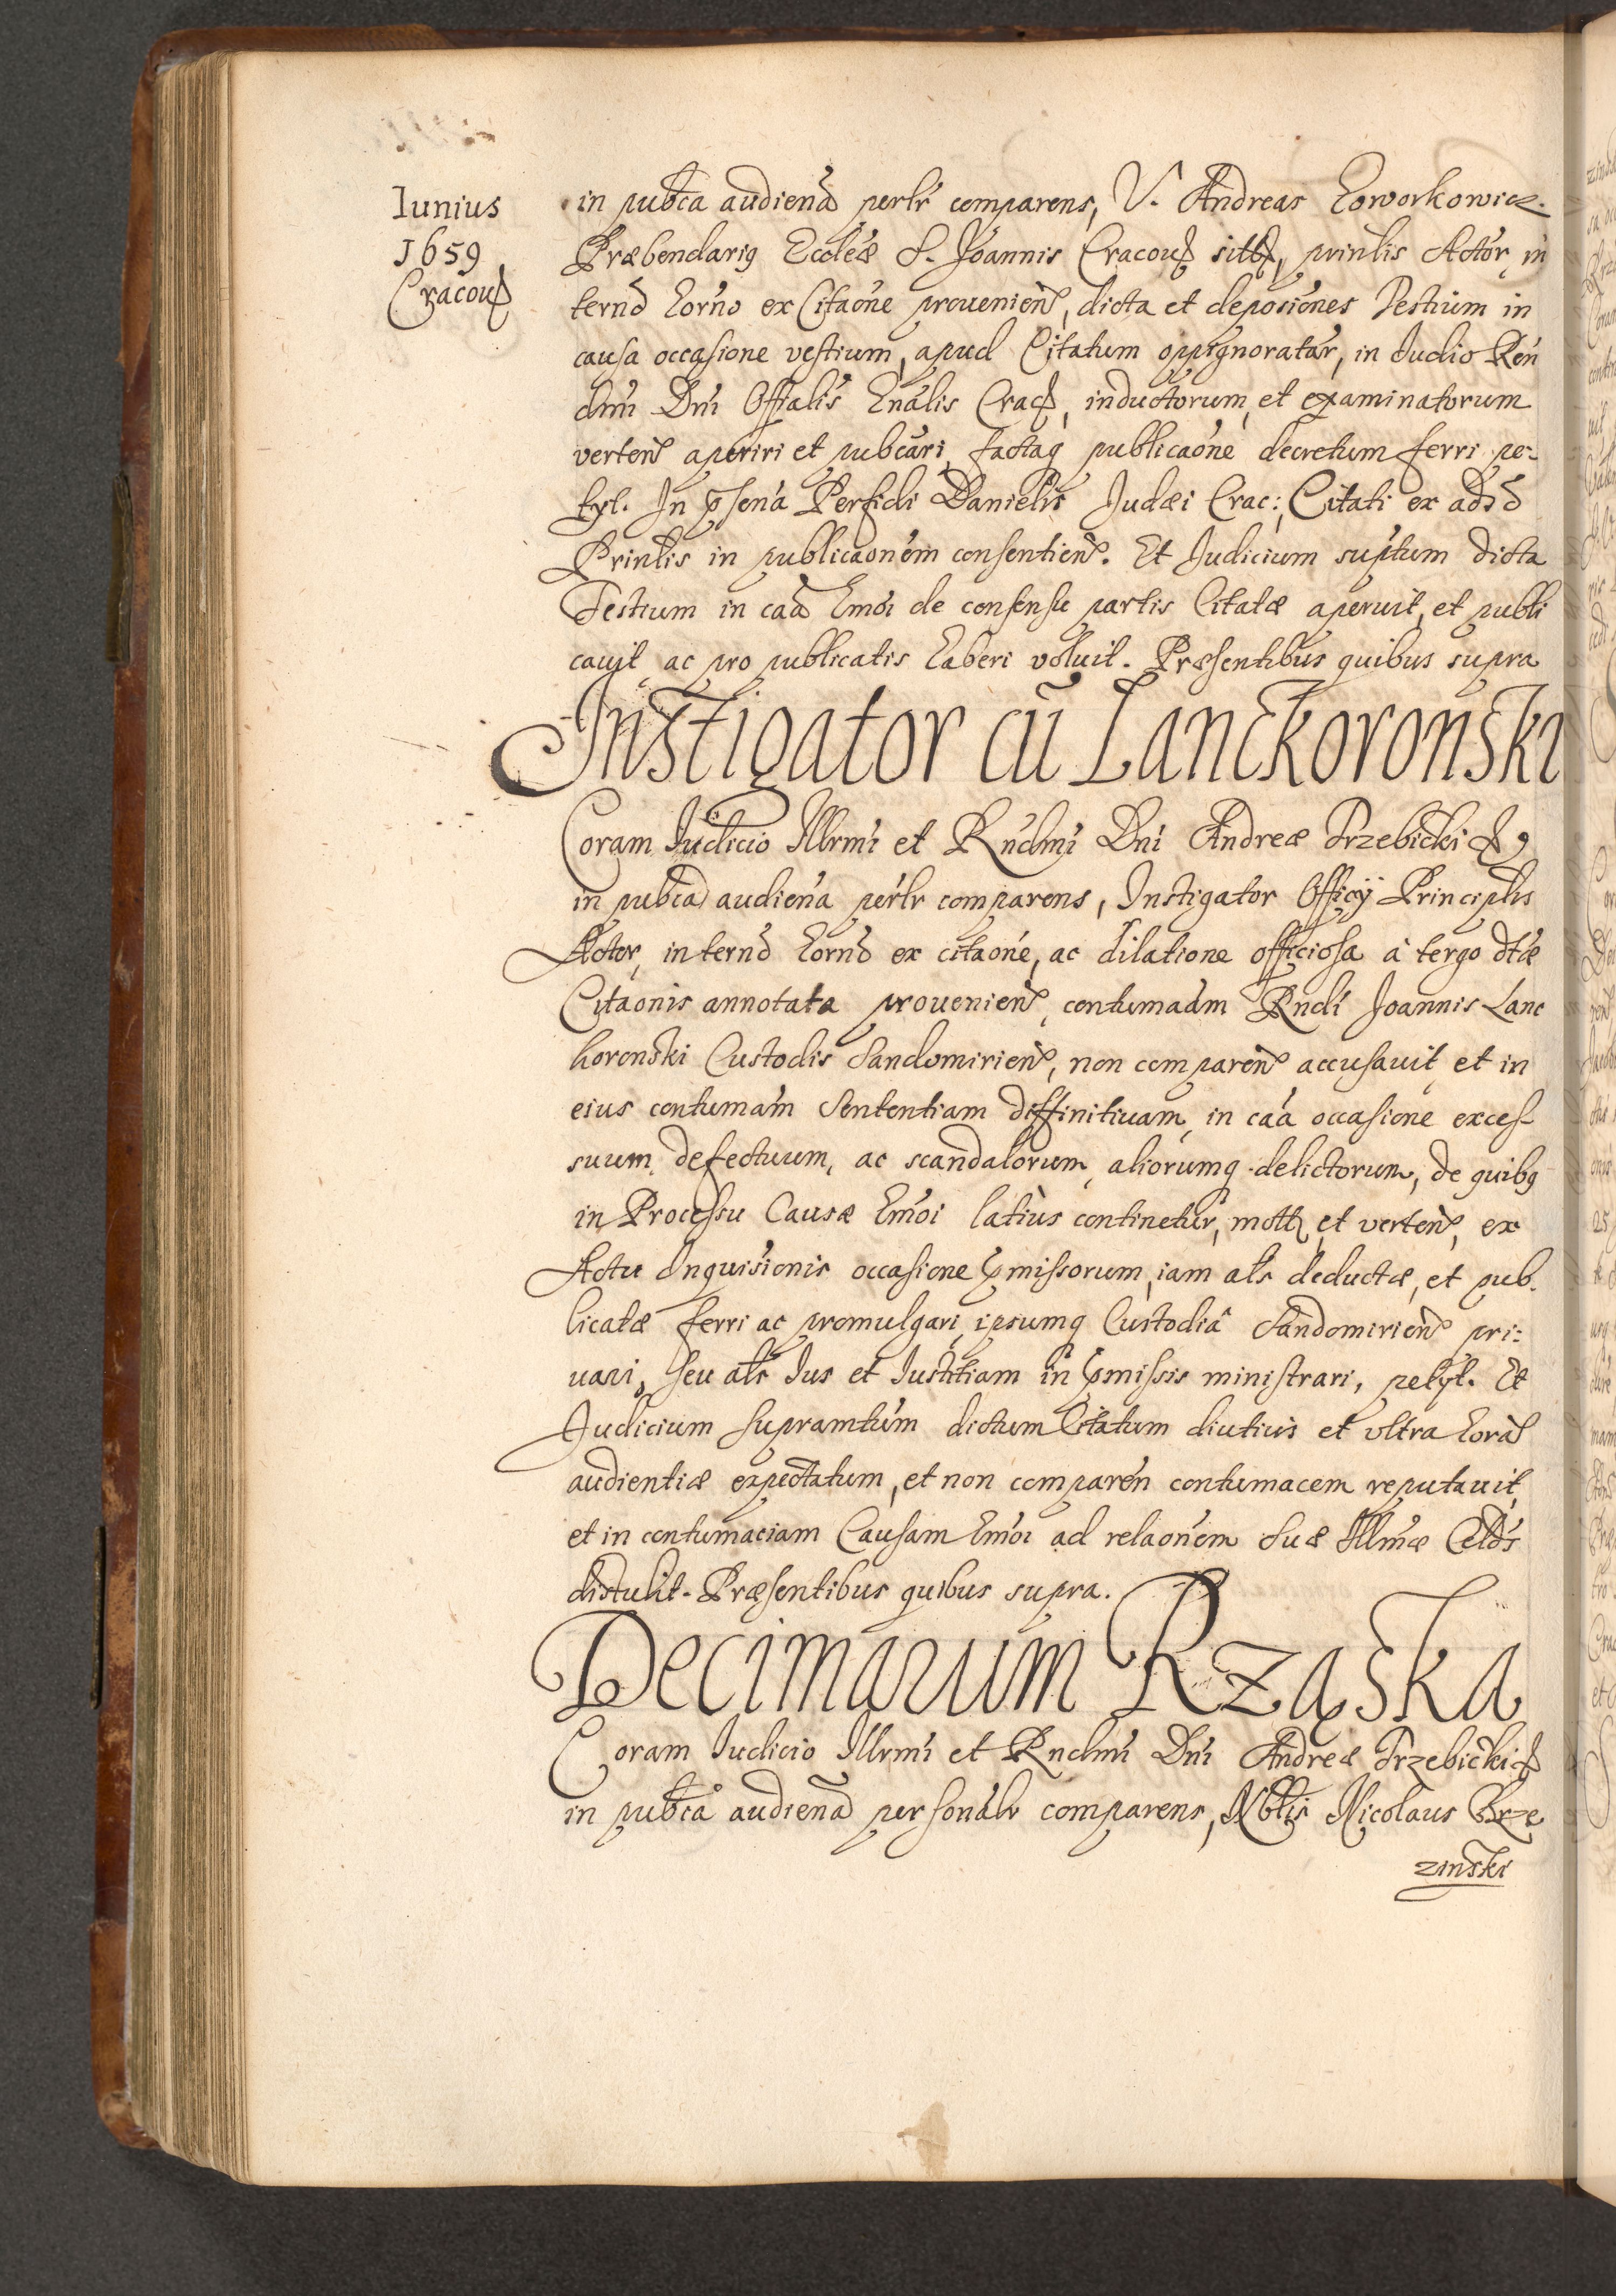 Iunius
1659
Cracouę
in pubca audiena perlr comparens, V. Andreas Howorkowicz.
Præbendarig Eccleæ S. Joannis Cracou sitt, prinlis Actor, in
termo horno ex Citaone prouenien, dicta et deposiones Testium in
causa occasione vestium, apud Citatum oppignoratar, in Iudio Ren
dmi Dni Offalis Gnalis Crac, inductorum, et examinatorum
verten aperiri et pubcari, factaq publicaone decretum ferri pe-
tyt. In psena Perfidi Danielis Judæi Crac: Citati ex adso
Prinlis in publicaonem consentien. Et Iudicium suptum dicta
Testium in caa hmoi de consensu partis Citatæ aperuit, et publi
cauit, ac pro publicatis haberi voluit. Præsentibus quibus supra
Instigator cũ Lanckoronski
Coram Iudicio Illrmi et Rndmi Dni Andreæ Trzebicki &,
in pubca audiena perlr comparens, Instigator Officÿ Principlis
Actor, in termo horno ex citaone, ac dilatione officiosa à tergo dtæ
Citaonis annotata prouenien, contumaam Rndi Joannis Lanc
koronski Custodis Sandomirien, non comparen accusauit et in
eius contumam Sententiam diffinitiuam, in caa occasione exces-
suum, defectuum, ac scandalorum, aliorumq delictorum, de quibg
in Processu Causæ hmoi latius continetur, mott et verten, ex
Actu Inquisionis occasione pmissorum, iam als deductæ, et pub.
licatæ ferri ac promulgari, ipsumq Custodiâ Sandomirien pri:
uari, seu als Ius et Iustitiam in pmissis ministrari, petyt. Et
Iudicium supramtum dictum Citatum diutius et vltra hora
audientiæ expectatum, et non comparen contumacem reputauit,
et in contumaciam Causam hmoi ad relaonem Suæ Illmæ Celds
distulit. Præsentibus quibus supra.
Decimarum Rząska
Coram Iudicio Illrmi et Rndmi Dni Andreæ Trzebicki &
in pubca audiena personalr comparens, Nblis Nicolaus Brze
zinski